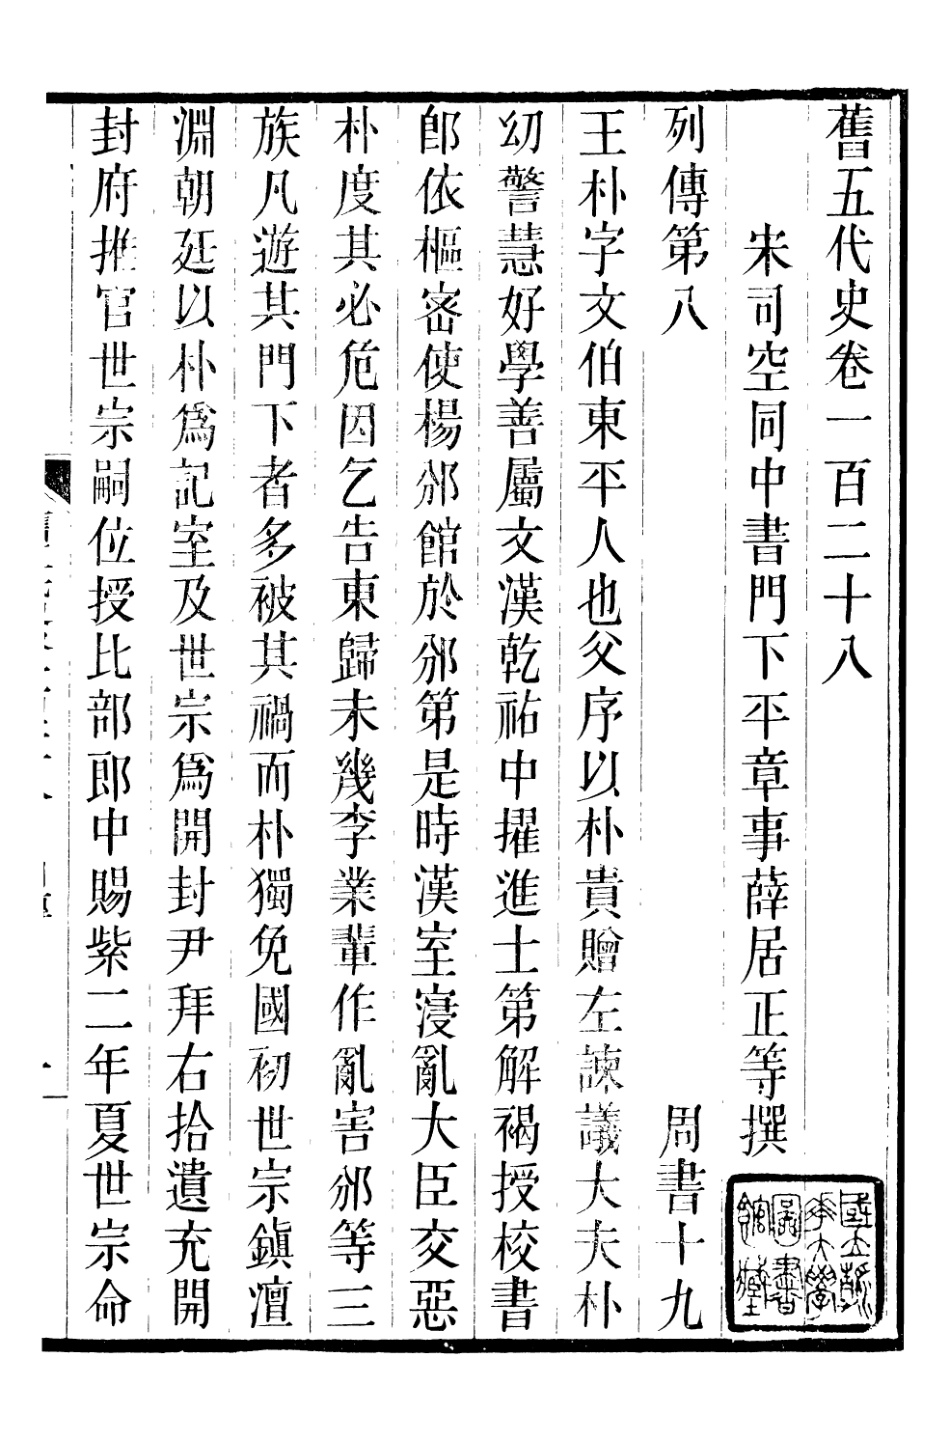 舊五代史卷一百二十八
宋司空同中書門下平章事薛居正等撰
列傳第八
周書十九
王朴字文伯東平人也父序以朴貴贈左諫議大夫朴
幼警慧好學善屬文漢乾祐中擢進士第解褐授校書
郎依樞密使楊邠館於邠第是時漢室寖亂大臣交惡
朴度其必危因乞告東歸未幾李業輩作亂害邠等三
族凡遊其門下者多被其禍而朴獨免國初世宗鎭澶
淵朝廷以朴爲記室及世宗爲開封尹拜右拾遺充開
封府推官世宗嗣位授比部郎中賜紫二年夏世宗命